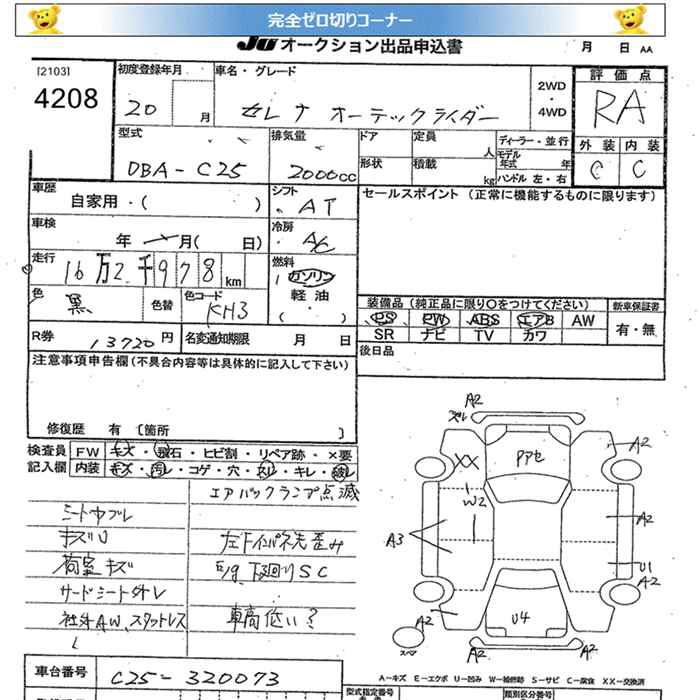 完全ゼロ切りコーナー
JU オークション出品申込書 月 日 AA
[2103]
4208
初度登録年月
20 月
車名・グレード
セレナ オーテックライダー
2WD
・
4WD
評価点
RA
型式
DBA-C25
排気量
2000cc
ドア
形状
定員
人
積載
kg
ディーラー・並行
モデル年式 年
ハンドル 左・右
外装 内装
C C
車歴
自家用・( )
シフト
AT
セールスポイント (正常に機能するものに限ります)
車検
年 月( 日)
冷房
A/C
走行
16万2千978km
燃料
ガソリン
軽油
( ・ )
色
黒
色替
色コード
KH3
装備品(純正品に限り〇をつけてください)
新車保証書
PS PW ABS エアB AW
SR ナビ TV カワ
有・無
R券
13720円
名変通知期限 月 日
後日品
注意事項申告欄(不具合内容等は具体的に記入して下さい)
修復歴 有 [箇所 ]
検査員
記入欄
FW キズ・飛石・ヒビ割・リペア跡・×要
内装 キズ・汚レ・コゲ・穴・スレ・キレ・破レ
エアバックランプ点滅
シートカブレ
キズU
左下インパネ先歪み
荷室キズ
E/g下廻りSC
サードシート外レ
社外AW、スタットレス
車高低い?
A2
ズレ
XX
アアセ
A2
W2
A3
A2
U1
A2
A2
U4
A2
A2
スペア
A-キズ E-エクボ U-凹み W-補修跡 S-サビ C-腐食 XX-交換済
車台番号
C25-320073
型式指定番号
類別区分番号